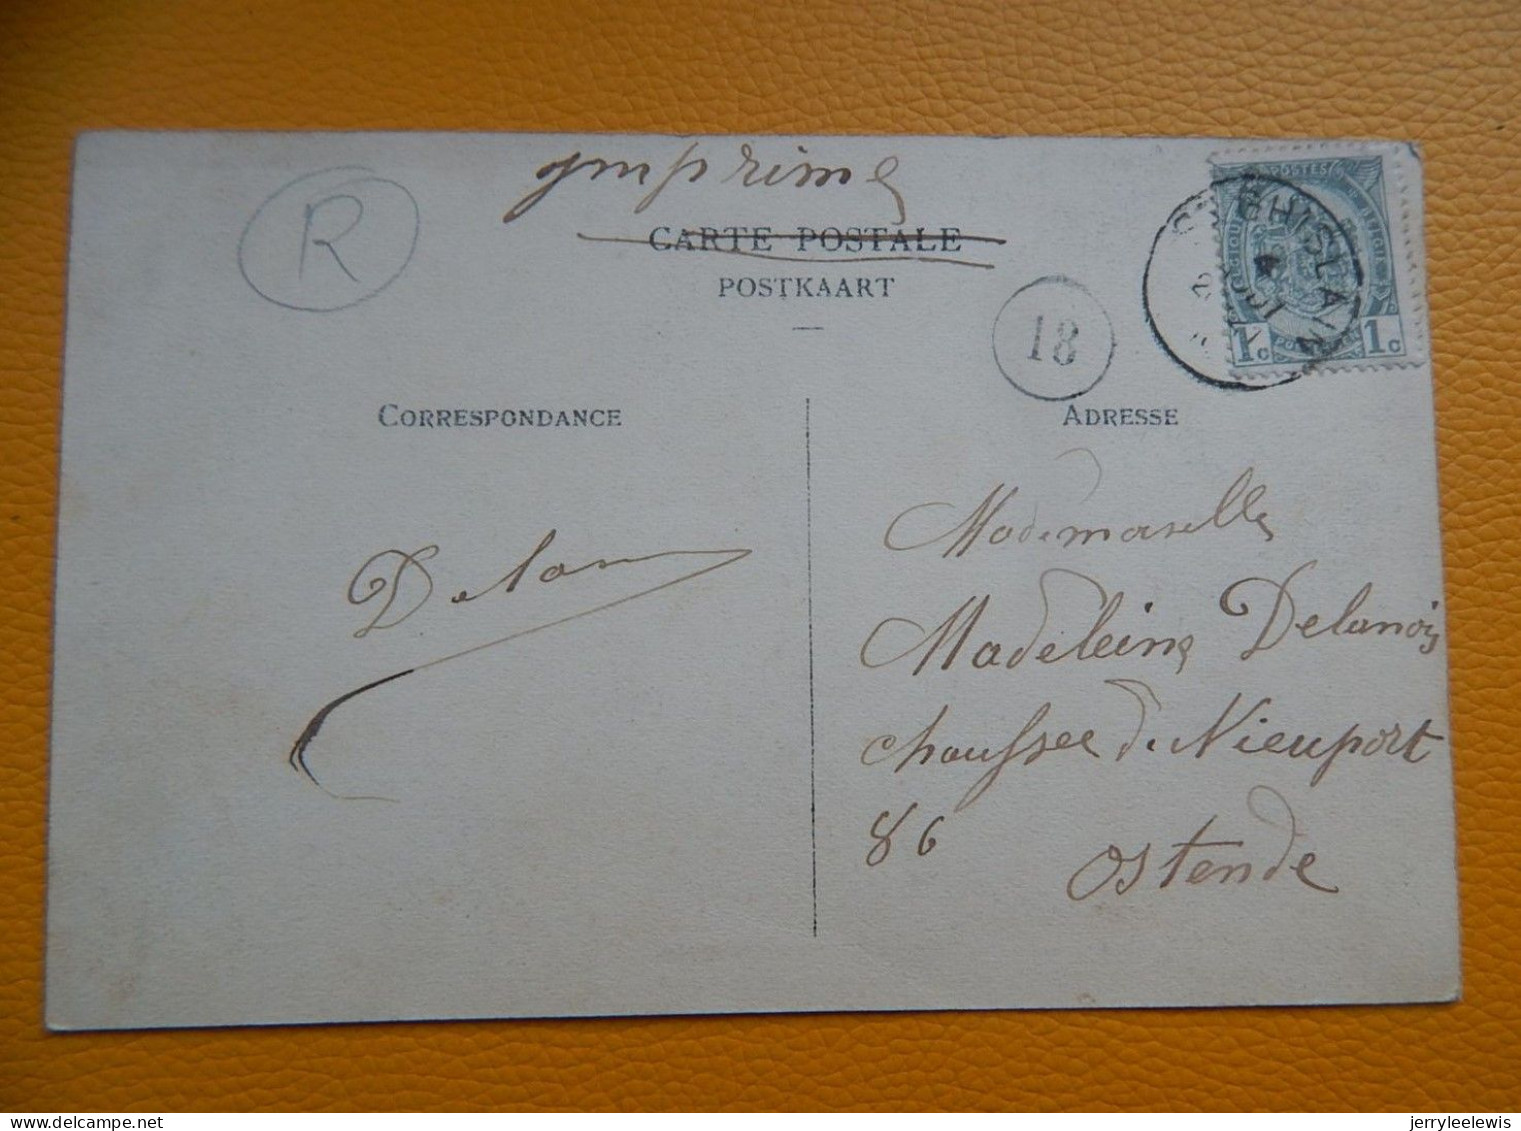 imprime
R
CARTE POSTALE
POSTKAART
18
POSTES
1c 1c
GHISLAIN
CORRESPONDANCE
ADRESSE
Mademoiselle
Madeleine Delanoy
chaussee de Nieuport
86
Ostende
delcampe.net
jerryleelewis